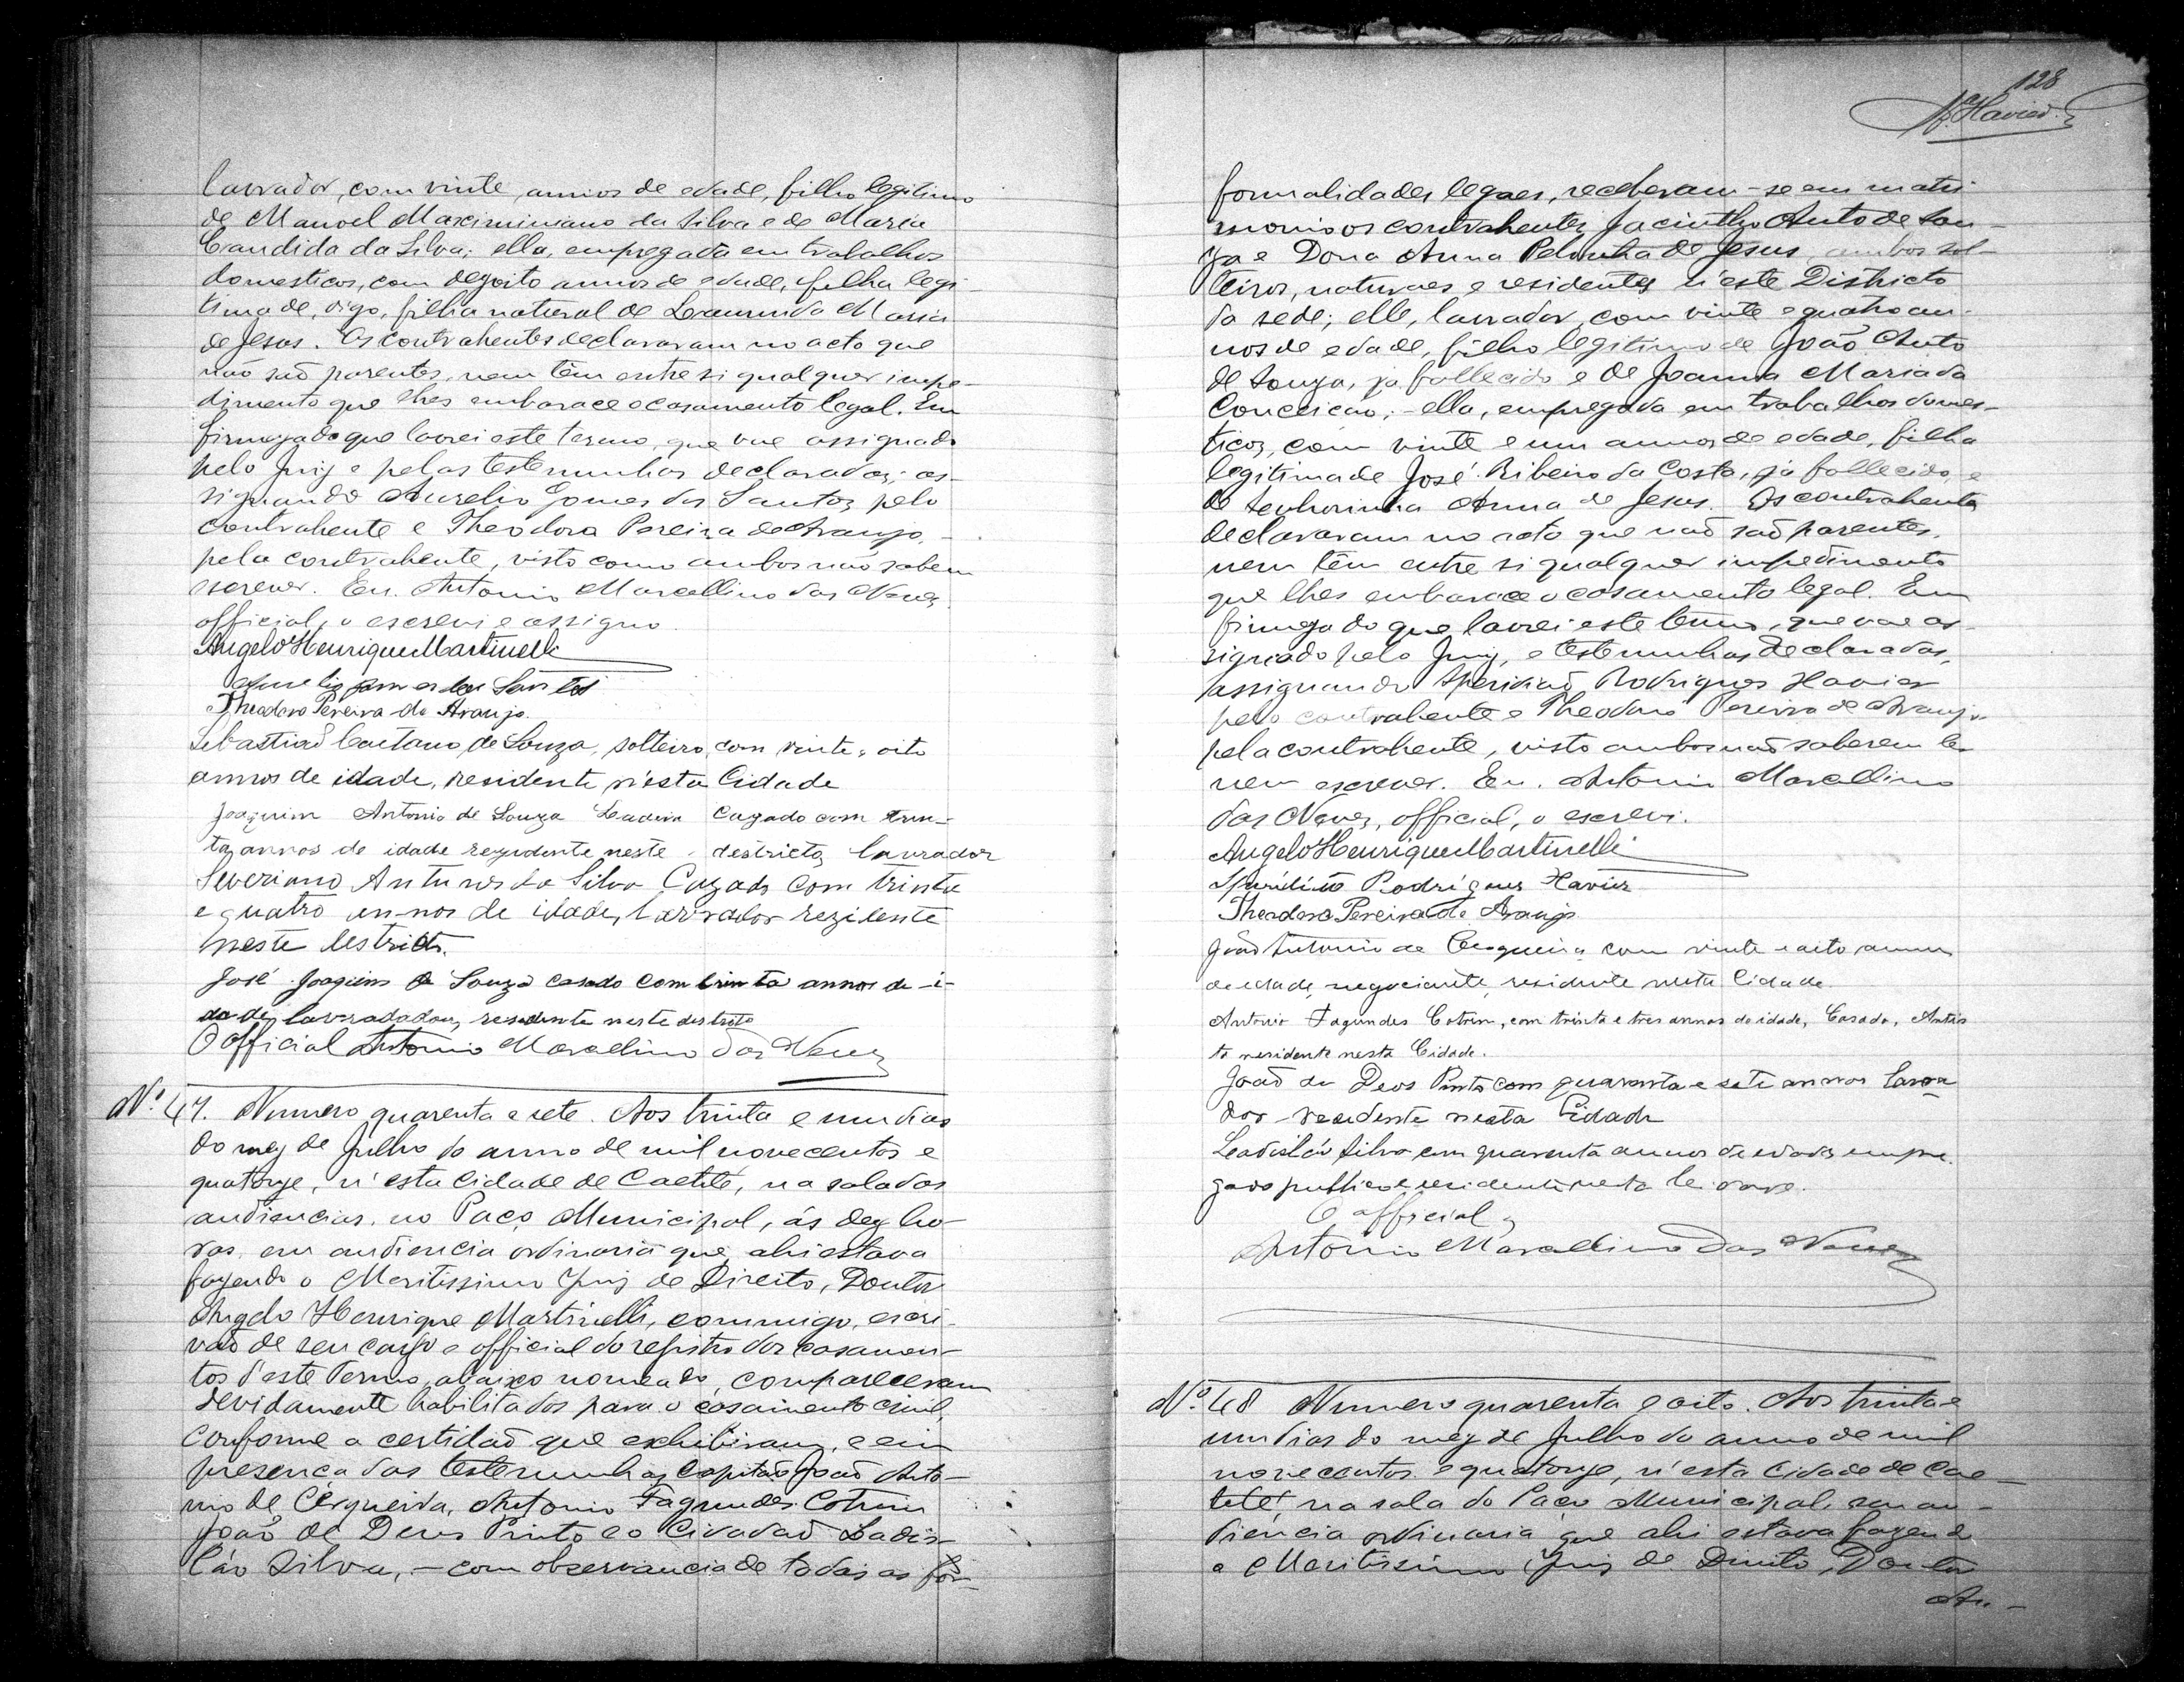 lavrador, com vinte annos de edade, filho legitimo
de Manoel Maximiniano da Silva e de Maria
Candida da Silva; ella, empregada em trabalhos
domesticos, com dezoito annos de edade, filha legi-
tima de, digo, filha natural de Laurinda Maria
de Jesus. Os contrahentes declararam no acto que
não são parentes, nem têm entre si qualquer impe-
dimento que lhes embarace o casamento legal. Em
firmeza do que lavrei este termo, que vae assignado
pelo Juiz e pelas testemunhas declaradas; as-
signando Aurelio Gomes dos Santos, pelo
contrahente e Theodoro Pereira de Araujo, -
pela contrahente, visto como ambos não sabem
escrever. Eu. Antonio Marcellino das Neves,
official, o escrevi e assigno.
Angelo Henrique Martinelli
Aurelio Gomes dos Santos
Theodoro Pereira de Araujo.
Sebastião Caetano de Souza, solteiro, com vinte e oito
annos de idade, residente n'esta Cidade
Joaquim Antonio de Souza Cazado com trin-
ta annos de idade rezidente neste destricto, lavrador
Severiano Antunes da Silva Cazado Com trinta
e quatro an-nos de idade, Lavrador rezidente
neste destricto.
José Joaquim de Souza casado com trinta annos de -i-
dade, lavradador, residente neste destrito
O official Antonio Marcellino das Neves
Nº 47. Numero quarenta e sete. Aos trinta e um dias
do mez de Julho do anno de mil novecentos e
quatorze, n'esta Cidade de Caetité, na sala das
audiencias, no Paço Municipal, ás dez ho-
ras, em audiencia ordinaria que ahi estava
fazendo o Meritissimo Juiz de Direito, Doutor
Angelo Henrique Martinelli, commigo, escri-
vão de seu cargo e official do registro dos casamen-
tos d'este Termo, abaixo nomeado, compareceram
devidamente habilitados para o casamento civil,
conforme a certidão que exhibiram, e em
presença das testemunhas Capitão João Anto-
nio de Cerqueira, Antonio Fagundes Cotrim
João de Deus Pinto e o Cidadão Ladis-
láo Silva, - com observancia de todas as for-
128
Xavier
formalidades legaes, receberam-se em matri-
monio os contrahentes Jacintho Anto de Sou-
za e Dona Anna de Jesus, ambos sol-
teiros, naturaes e residentes n'este Districto
da sede; elle, lavrador, com vinte e quatro an-
nos de edade, filho legitimo de João Anto
de Souza, já fallecido e de Joanna Maria da
Conceição; - ella, empregada em trabalhos domes-
ticos, com vinte e um annos de edade, filha
legitima de José Ribeiro da Costa, já fallecido, e
de Senhorinha Anna de Jesus. Os contrahentes
declararam no acto que não são parentes,
nem têm entre si qualquer impedimento
que lhes embarace o casamento legal. Em
firmeza do que lavrei este termo, que vae as-
signado pelo Juiz, e testemunhas declaradas,
assignando Speridião Rodrigues Xavier
pelo contrahente e Theodoro Pereira de Araujo
pela contrahente, visto ambos não saberem ler
nem escrever. Eu. Antonio Marcellino
das Neves, official, o escrevi.
Angelo Henrique Martinelli
Speridião Rodrigues Xavier
Theodoro Pereira de Araujo
João Antonio de Cerqueira com vinte e oito annos
de edade, negociante, residente nesta Cidade
Antonio Fagundes Cotrim, com trinta e tres annos de idade, Casado, Artis
ta residente nesta Cidade.
João de Deos Pinto com quarenta e sete annos lavra
dor residente nesta Cidade
Ladisláo Silva com quarenta annos de edade, empre-
gado publico e residente nesta Cidade.
O official,
Antonio Marcellino das Neves
Nº 48 Numero quarenta e oito. Aos trinta e
um dias do mez de Julho do anno de mil
novecentos e quatorze, n'esta Cidade de Cae-
tité, na sala do Paço Municipal, em au-
diencia ordinaria que ahi estava fazendo
o Meritissimo Juiz de Direito, Doutor
An-